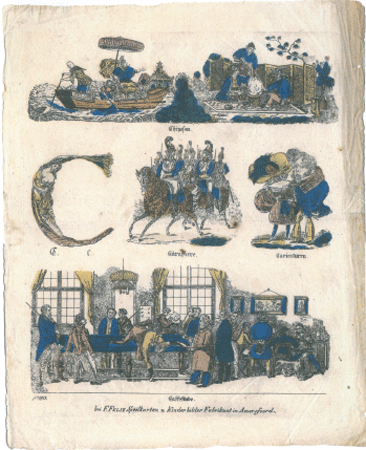 Chinesen.
C
C. C.
Cürassiere.
Caricaturen.
Caffestube.
bei F. FELIX Spielkarten u Kinderbilder Fabrikant in Amersfoord.